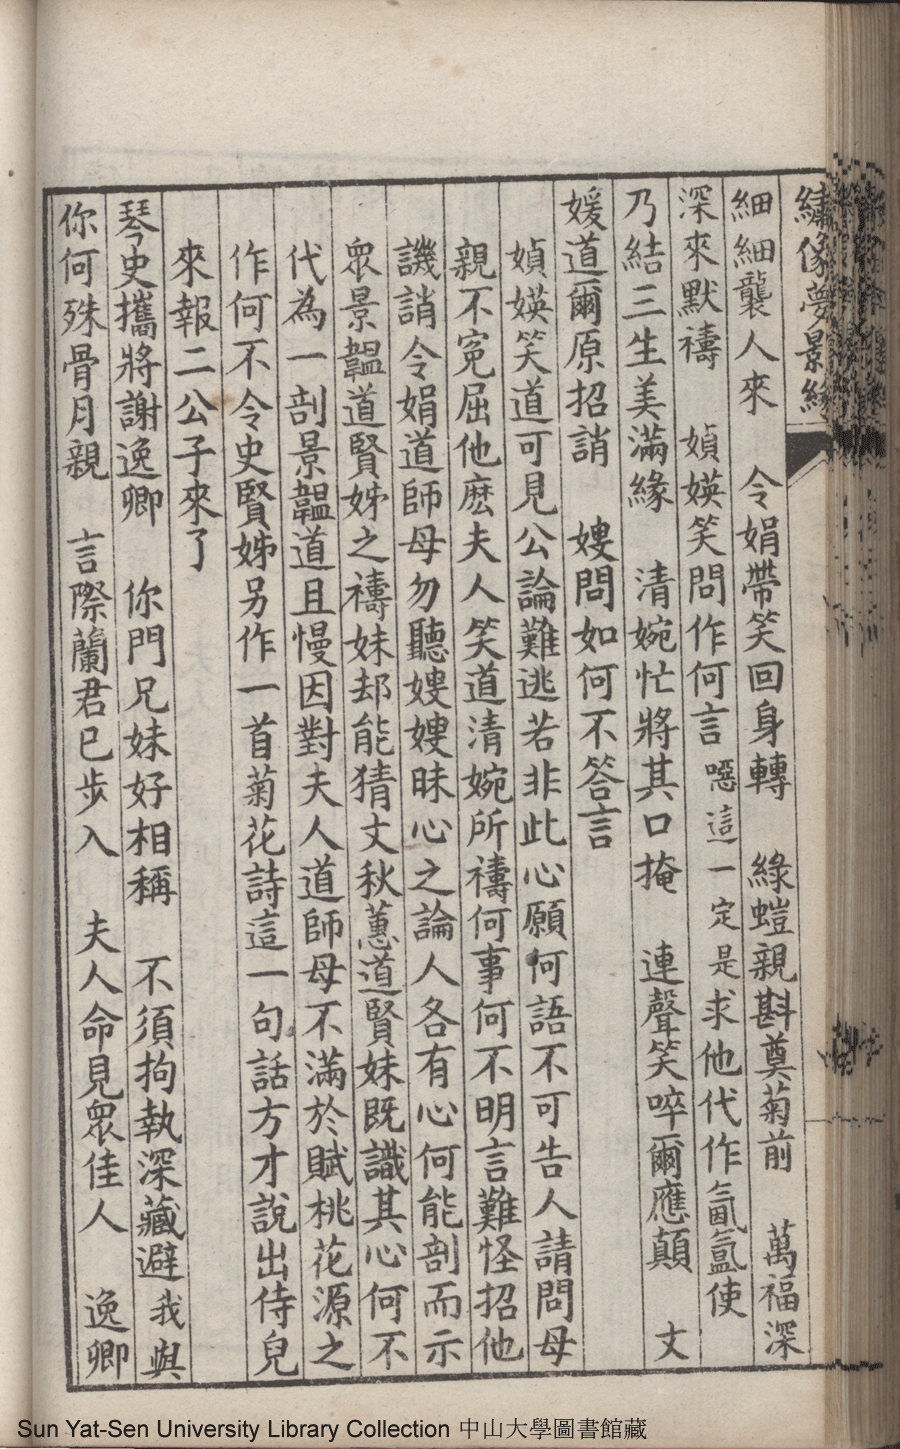 繡像夢景緣
細細襲人來　令娟帶笑回身轉　綠螘親斟奠菊前　萬福深
深來默禱　媜媖笑問作何言噁這一定是求他代作氤氳使
乃結三生美滿緣　清婉忙將其口掩　連聲笑啐爾應顛　文
媛道爾原招誚　㛐問如何不答言
媜媖笑道可見公論難逃若非此心願何語不可告人請問母
親不寃屈他麽夫人笑道清婉所禱何事何不明言難怪招他
譏誚令娟道師母勿聽嫂嫂昧心之論人各有心何能剖而示
眾景韞道賢姊之禱妹却能猜丈秋蕙道賢妹既識其心何不
代為一剖景韞道且慢因對夫人道師母不滿於賦桃花源之
作何不令史賢姊另作一首菊花詩這一句話方才說出侍兒
來報二公子來了
琴史攜將謝逸卿　你門兄妹好相稱　不須拘執深藏避我與
你何殊骨月親　言際蘭君已步入　夫人命見眾佳人　逸卿
Sun Yat-Sen University Library Collection 中山大學圖書館藏